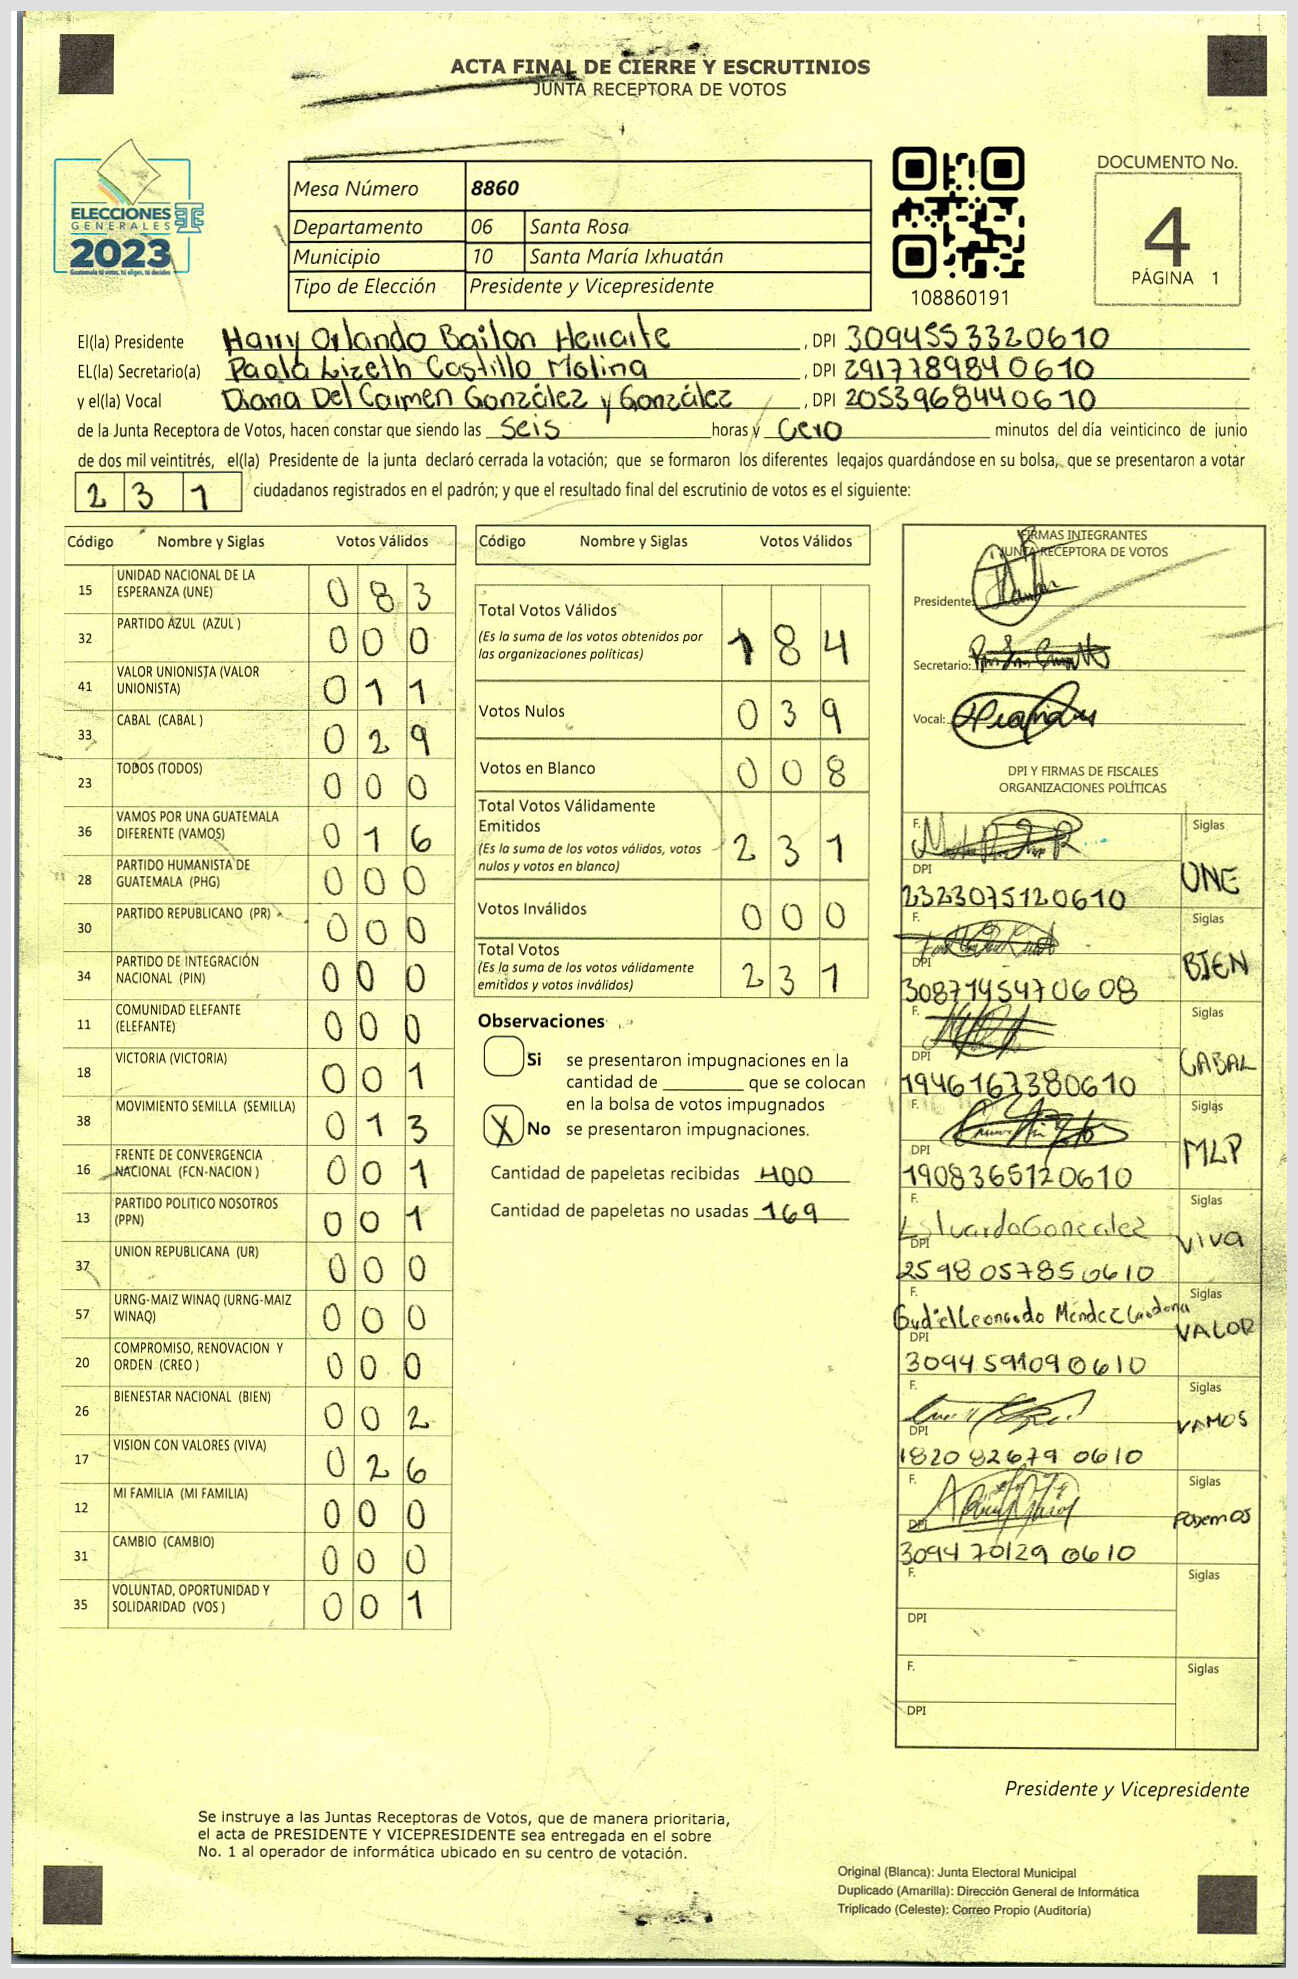 ACTA FINAL DE CIERRE Y ESCRUTINIOS
JUNTA RECEPTORA DE VOTOS
ELECCIONES
GENERALES
2023
Guatemala tú votas, tú eliges, tú decides
Mesa Número 8860
Departamento 06 Santa Rosa
Municipio 10 Santa María Ixhuatán
Tipo de Elección Presidente y Vicepresidente
108860191
DOCUMENTO No.
4
PÁGINA 1
El(la) Presidente Harry Orlando Bailon Herrarte , DPI 3094553320610
EL(la) Secretario(a) Paola Lizeth Castillo Molina , DPI 2917789840610
y el(la) Vocal Diana Del Carmen González y González , DPI 2053968440610
de la Junta Receptora de Votos, hacen constar que siendo las seis horas y cero minutos del día veinticinco de junio
de dos mil veintitrés, el(la) Presidente de la junta declaró cerrada la votación; que se formaron los diferentes legajos guardándose en su bolsa, que se presentaron a votar
231 ciudadanos registrados en el padrón; y que el resultado final del escrutinio de votos es el siguiente:
Código Nombre y Siglas Votos Válidos
15 UNIDAD NACIONAL DE LA ESPERANZA (UNE) 083
32 PARTIDO AZUL (AZUL ) 000
41 VALOR UNIONISTA (VALOR UNIONISTA) 011
33 CABAL (CABAL ) 029
23 TODOS (TODOS) 000
36 VAMOS POR UNA GUATEMALA DIFERENTE (VAMOS) 016
28 PARTIDO HUMANISTA DE GUATEMALA (PHG) 000
30 PARTIDO REPUBLICANO (PR) 000
34 PARTIDO DE INTEGRACIÓN NACIONAL (PIN) 000
11 COMUNIDAD ELEFANTE (ELEFANTE) 000
18 VICTORIA (VICTORIA) 001
38 MOVIMIENTO SEMILLA (SEMILLA) 013
16 FRENTE DE CONVERGENCIA NACIONAL (FCN-NACION ) 001
13 PARTIDO POLITICO NOSOTROS (PPN) 001
37 UNION REPUBLICANA (UR) 000
57 URNG-MAIZ WINAQ (URNG-MAIZ WINAQ) 000
20 COMPROMISO, RENOVACION Y ORDEN (CREO ) 000
26 BIENESTAR NACIONAL (BIEN) 002
17 VISION CON VALORES (VIVA) 026
12 MI FAMILIA (MI FAMILIA) 000
31 CAMBIO (CAMBIO) 000
35 VOLUNTAD, OPORTUNIDAD Y SOLIDARIDAD (VOS ) 001
Código Nombre y Siglas Votos Válidos
Total Votos Válidos 184
(Es la suma de los votos obtenidos por
las organizaciones políticas)
Votos Nulos 039
Votos en Blanco 008
Total Votos Válidamente
Emitidos 231
(Es la suma de los votos válidos, votos
nulos y votos en blanco)
Votos Inválidos 000
Total Votos 231
(Es la suma de los votos válidamente
emitidos y votos inválidos)
Observaciones
Si se presentaron impugnaciones en la
cantidad de ________ que se colocan
en la bolsa de votos impugnados
X No se presentaron impugnaciones.
Cantidad de papeletas recibidas 400
Cantidad de papeletas no usadas 169
FIRMAS INTEGRANTES
JUNTA RECEPTORA DE VOTOS
Presidente:
Secretario:
Vocal:
DPI Y FIRMAS DE FISCALES
ORGANIZACIONES POLÍTICAS
F. Siglas
DPI UNE
2323075120610
F. Siglas
DPI BIEN
3087145470608
F. Siglas
DPI CABAL
1946167380610
F. Siglas
DPI MLP
1908365120610
F. Siglas
Estuardo Gonzalez
DPI viva
2598057850610
F. Siglas
Gudiel Leonardo Méndez Cardona
DPI VALOR
3094591090610
F. Siglas
DPI VAMOS
1820826790610
F. Siglas
DPI Podemos
3094701290610
F. Siglas
DPI
F. Siglas
DPI
Presidente y Vicepresidente
Se instruye a las Juntas Receptoras de Votos, que de manera prioritaria,
el acta de PRESIDENTE Y VICEPRESIDENTE sea entregada en el sobre
No. 1 al operador de informática ubicado en su centro de votación.
Original (Blanca): Junta Electoral Municipal
Duplicado (Amarilla): Dirección General de Informática
Triplicado (Celeste): Correo Propio (Auditoría)